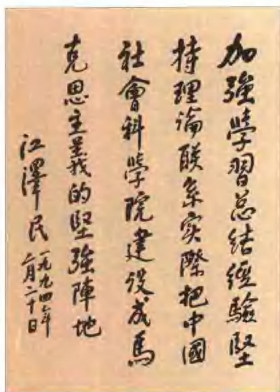 加強學習总结經驗堅
持理論联系实際把中國
社會科學院建设成馬
克思主義的堅強陣地
江澤民一九九四年
二月二十日